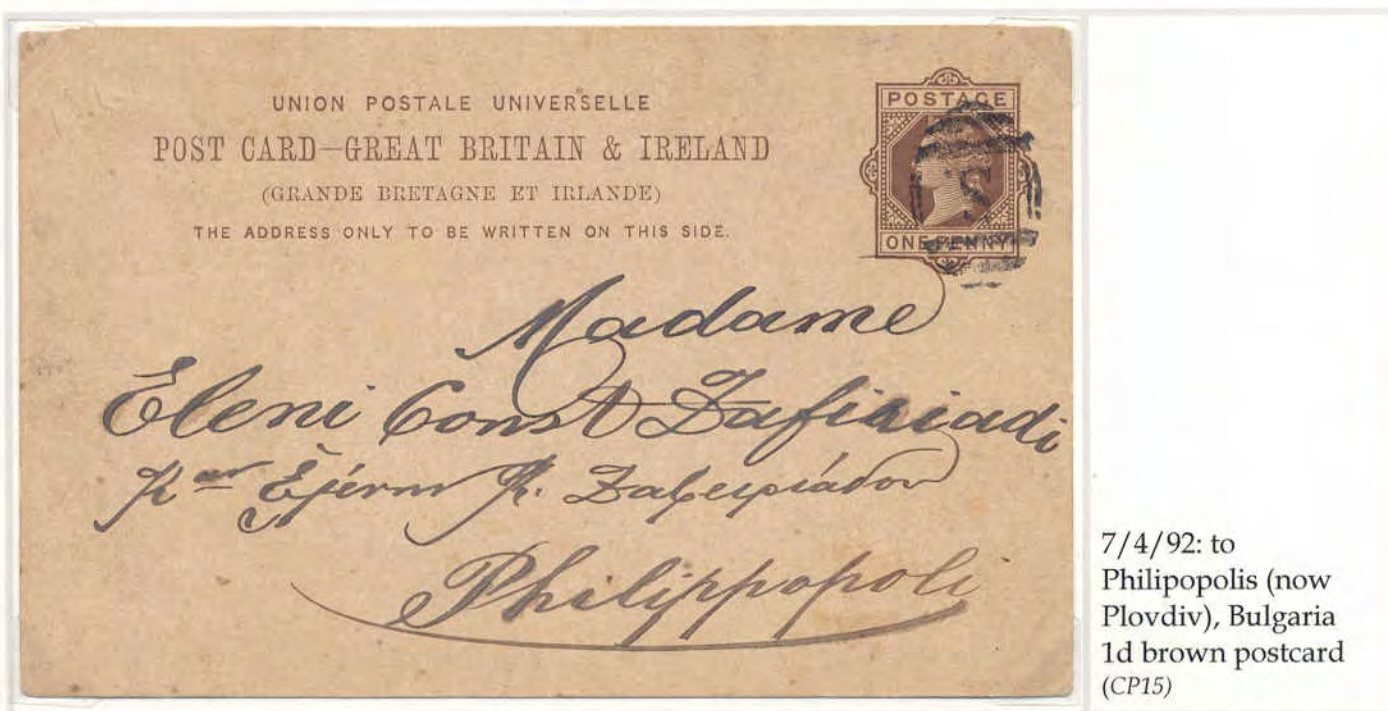 UNION POSTALE UNIVERSELLE
POST CARD–GREAT BRITAIN & IRELAND
(GRANDE BRETAGNE ET IRLANDE)
THE ADDRESS ONLY TO BE WRITTEN ON THIS SIDE.
POSTAGE
ONE PENNY
Madame
Eleni Const Zafiriadi
Καν Ἑλένῃ Κ. Ζαφειριάδου
Philippopoli
7/4/92: to
Philipopolis (now
Plovdiv), Bulgaria
1d brown postcard
(CP15)